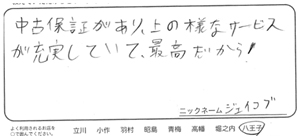 中古保証があり、上の様なサービス
が充実していて、最高だから!
ニックネーム ジェイコブ
よく利用されるお店を
○で囲んでください。 立川 小作 羽村 昭島 青梅 高幡 堀之内 八王子